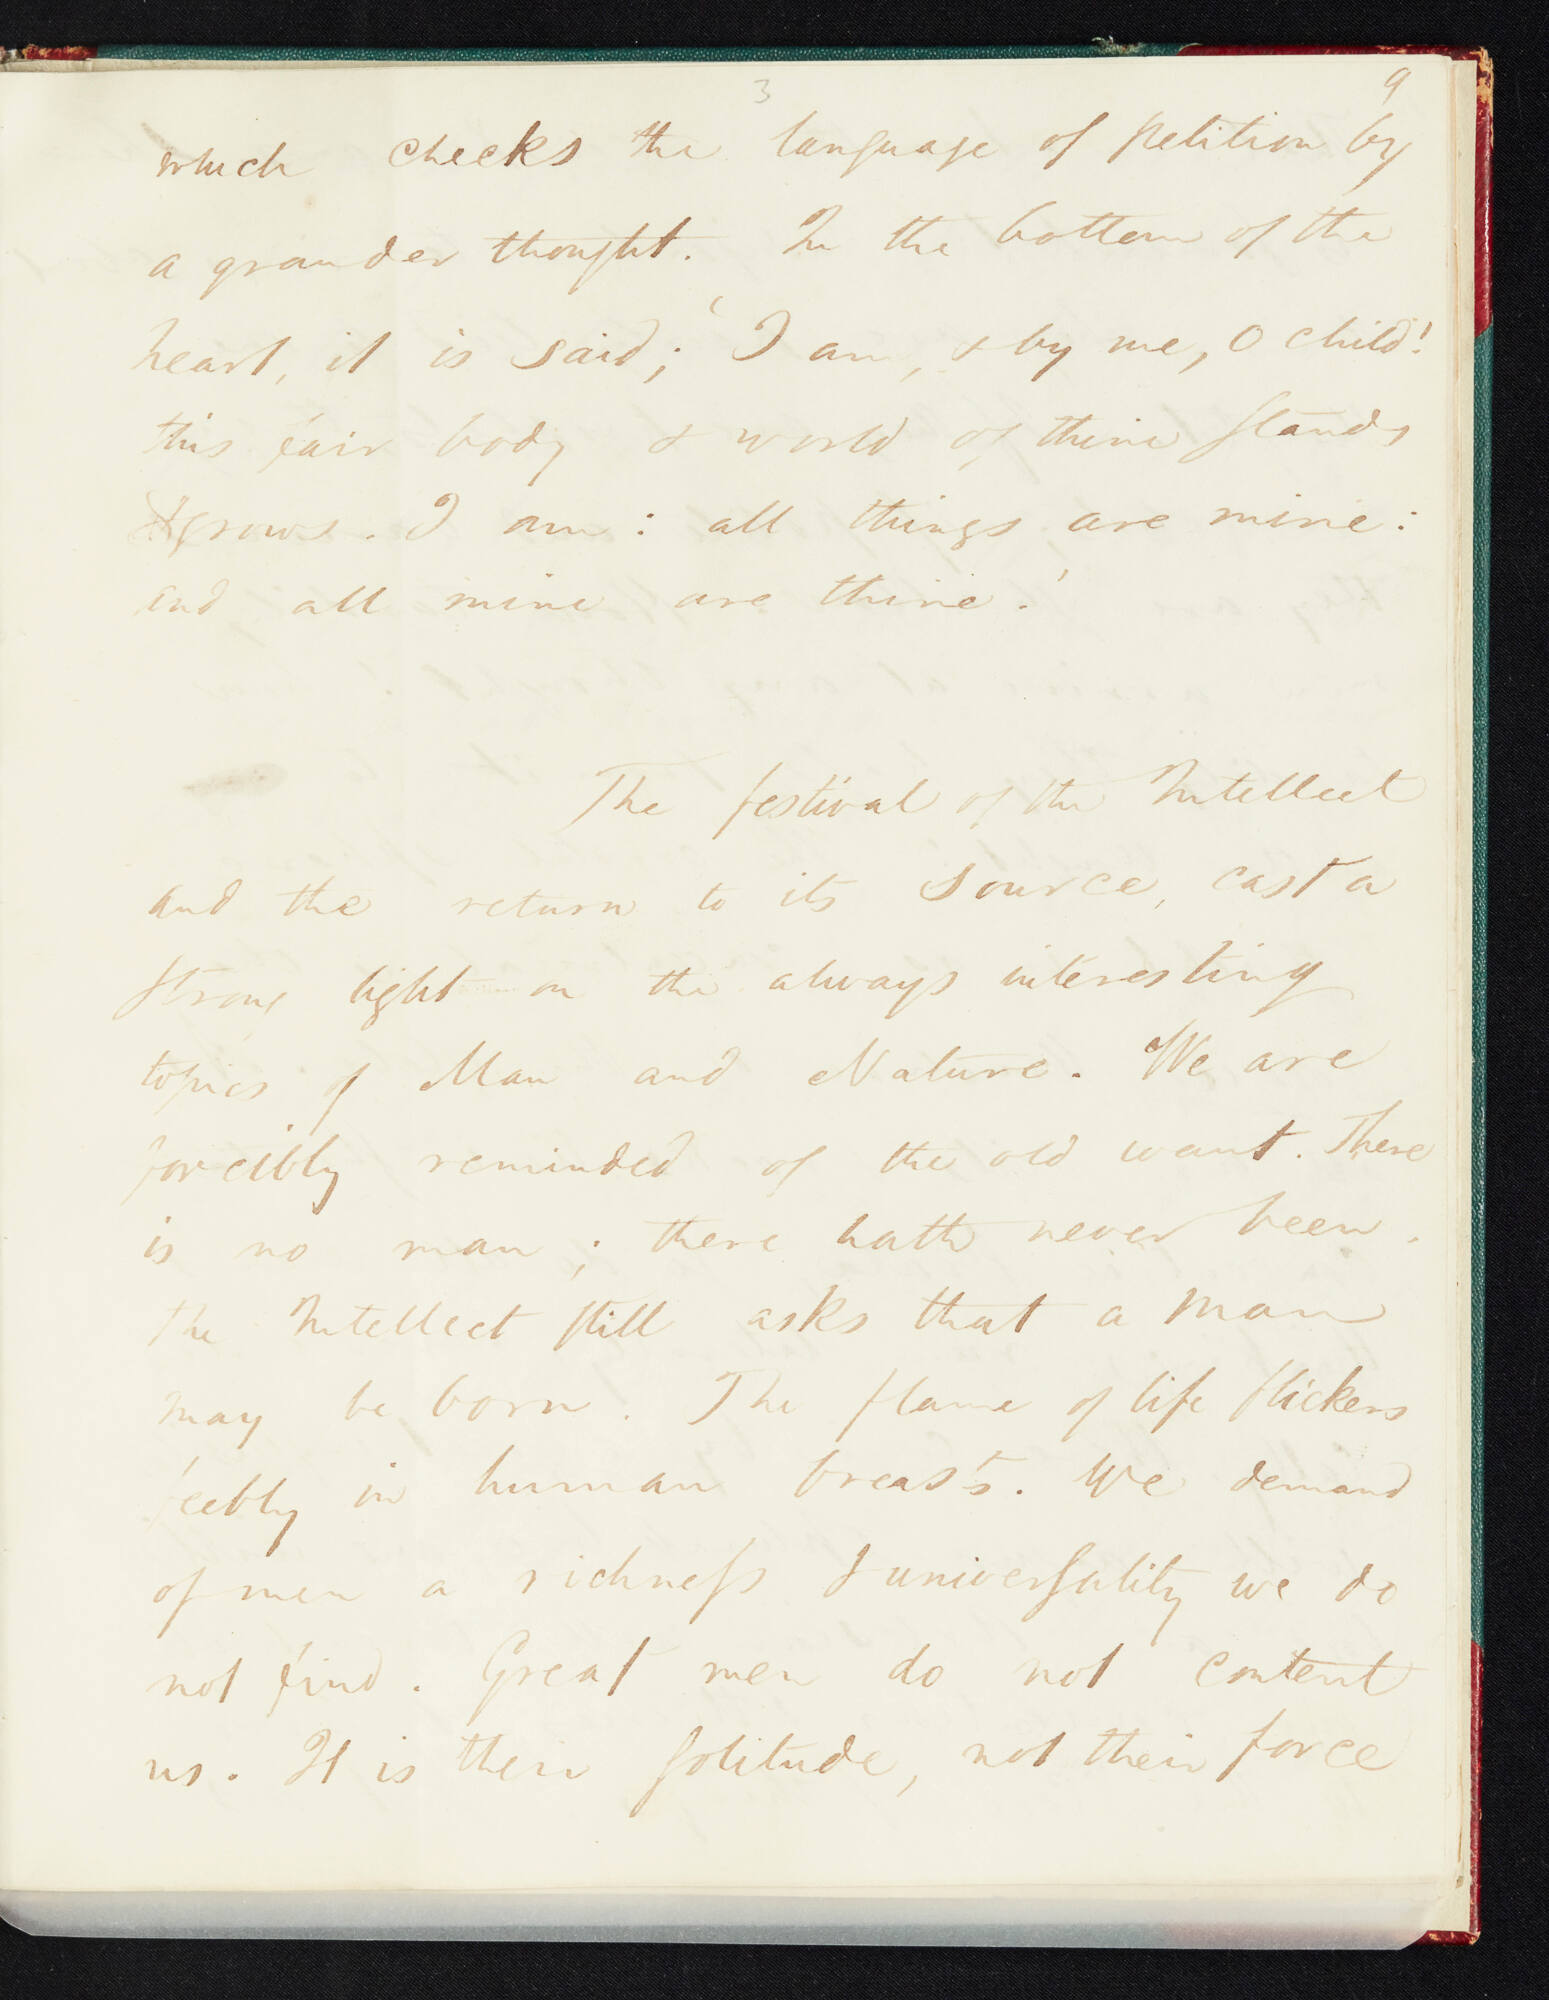 3
9
which checks the language of petition by
a grander thought. In the bottom of the
heart, it is said; 'I am, & by me, O child!
this fair body & world of thine stands
& grows. I am: all things are mine:
and all mine are thine.'
The festival of the Intellect
and the return to its source, cast a
strong light on the always interesting
topics of Man and Nature. We are
forcibly reminded of the old want. There
is no man; there hath never been.
The Intellect still asks that a man
may be born. The flame of life flickers
feebly in human breasts. We demand
of men a richness & universality we do
not find. Great men do not content
us. It is their solitude, not their force